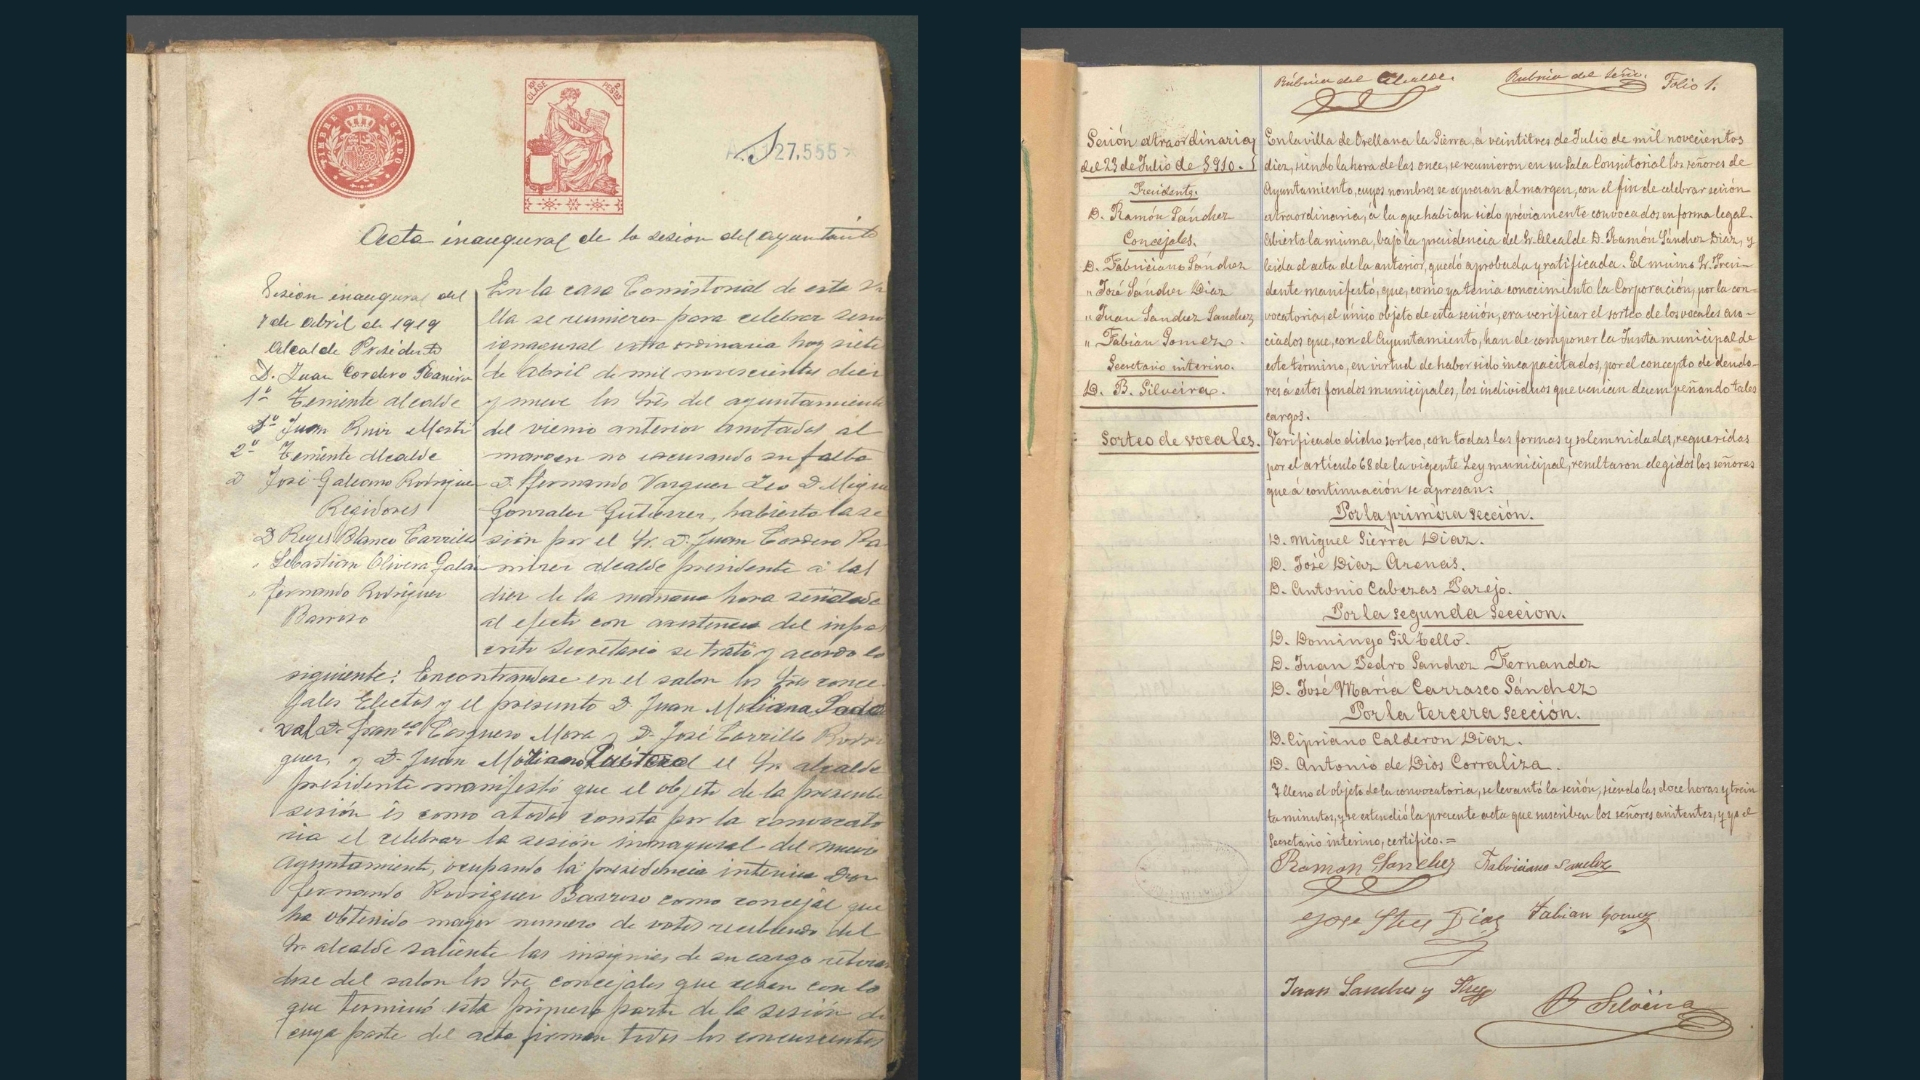 TIMBRE DEL ESTADO
CLASE
PESOS
127,555
Acta inaugural de la sesion del ayuntamto
Sesion inaugural del
7 de Abril de 1919
Alcalde Presidente
D. Juan Cordero Ramirez
1er Teniente Alcalde
D. Juan Ruiz
2º Teniente Alcalde
D José Galeano Rodriguez
Regidores
D Reyes Blanco Carrillo
" Sebastian Olivera Galan
" Fernando Rodriguez
Barroso
En la casa Consistorial de esta Vi
lla se reunieron para celebrar sesion
inaugural extraordinaria hoy siete
de Abril de mil novecientos diez
y nueve los Sres del ayuntamiento
del vienio anterior anotados al
margen no escusando su falta
D. Fernando Vazquez D. Miguel
Gonzalez Gutierrez, habierto la se
sión por el Sr. D. Juan Cordero Ra
mirez alcalde presidente á las
diez de la mañana hora señalada
al efecto con asistencia del infra
crito Secretario se trató y acordo lo
siguiente: Encontrandose en el salon los Sres conce
jales Electos y el presunto D Juan Moliana
D. Franco Mora y D. José Carrillo Rodri
guez, y D. Juan el Sr. alcalde
presidente manifestó que el objeto de la presente
sesión és como atodos consta por la convocato
ria el celebrar la sesión innagural del nuevo
Ayuntamiento, ocupando la presidencia interina Don
Fernando Rodriguez Barroso como concejal que
ha obtenido mayor numero de votos recibiendo del
Sr alcalde saliente las insignies de su cargo retiran
dose del salon los Sres concejales que cesan con lo
que terminó esta primera parte de la sesión de
cuya parte del acta firman todos los concurrentes
Rúbrica del Alcalde.
Rubrica del Srio.
Folio 1.
Sesión extraordinaria
del 23 de Julio de 1910.
Presidente.
D. Ramón Sánchez
Concejales.
D. Fabriciano Sánchez
" José Sánchez Diaz
" Juan Sanchez Sanchez
" Fabian Gomez.
Secretario interino.
D. B. Silveira.
Sorteo de vocales.
En la villa de Orellana la Sierra, á veintitres de Julio de mil novecientos
diez, siendo la hora de las once, se reunieron en su Sala Consistorial los señores de
Ayuntamiento, cuyos nombres se expresan al margen, con el fin de celebrar sesión
extraordinaria, á la que habian sido préviamente convocados en forma legal.
Abierta la misma, bajo la presidencia del Sr. Alcalde D. Ramón Sánchez Diaz, y
leida el acta de la anterior, quedó aprobada y ratificada. El mismo Sr. Presi-
dente manifestó, que, como ya tenia conocimiento la Corporación, por la con-
vocatoria, el único objeto de esta sesión, era verificar el sorteo de los vocales aso-
ciados que, con el Ayuntamiento, han de componer la Junta municipal de
este término, en virtud de haber sido incapacitados, por el concepto de deudo-
res á estos fondos municipales, los individuos que venian desempeñando tales
cargos.
Verificado dicho sorteo, con todas las formas y solemnidades, requeridas
por el artículo 68 de la vigente Ley municipal, resultaron elegidos los señores
que á continuación se expresan:
Por la primera sección.
D. Miguel Sierra Diaz.
D. José Diaz Arenas.
D. Antonio Cabezas Parejo.
Por la segunda sección.
D. Domingo Gil Tello.
D. Juan Pedro Sanchez Fernandez
D. José María Carrasco Sánchez
Por la tercera sección.
D. Cipriano Calderon Diaz.
D. Antonio de Dios Corraliza.
Y lleno el objeto de la convocatoria, se levantó la sesión, siendo las doce horas y trein
ta minutos, y se extendió la presente acta que suscriben los señores asistentes, y yo el
Secretario interino, certifico.=
Ramon Sanchez Fabriciano Sanchez
Jose Shez Diaz Fabian Gomez
Juan Sanches y Shez
B Silveira